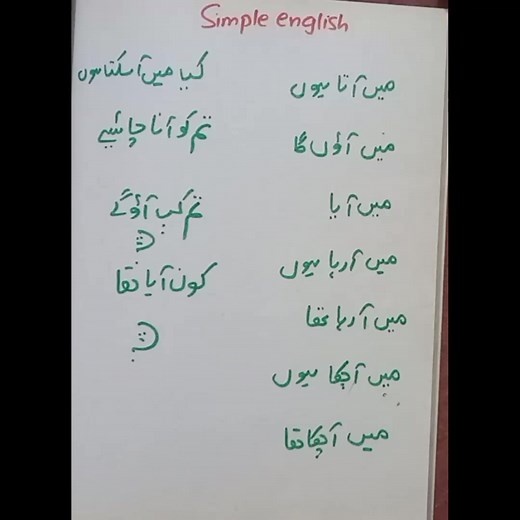 Simple english
میں آتا ہوں
میں آؤں گا
میں آیا
میں آرہا ہوں
میں آرہا تھا
میں آچکا ہوں
میں آچکا تھا
کیا میں آسکتا ہوں
تم کو آنا چاہئیے
تم کب آؤگے
کون آیا تھا